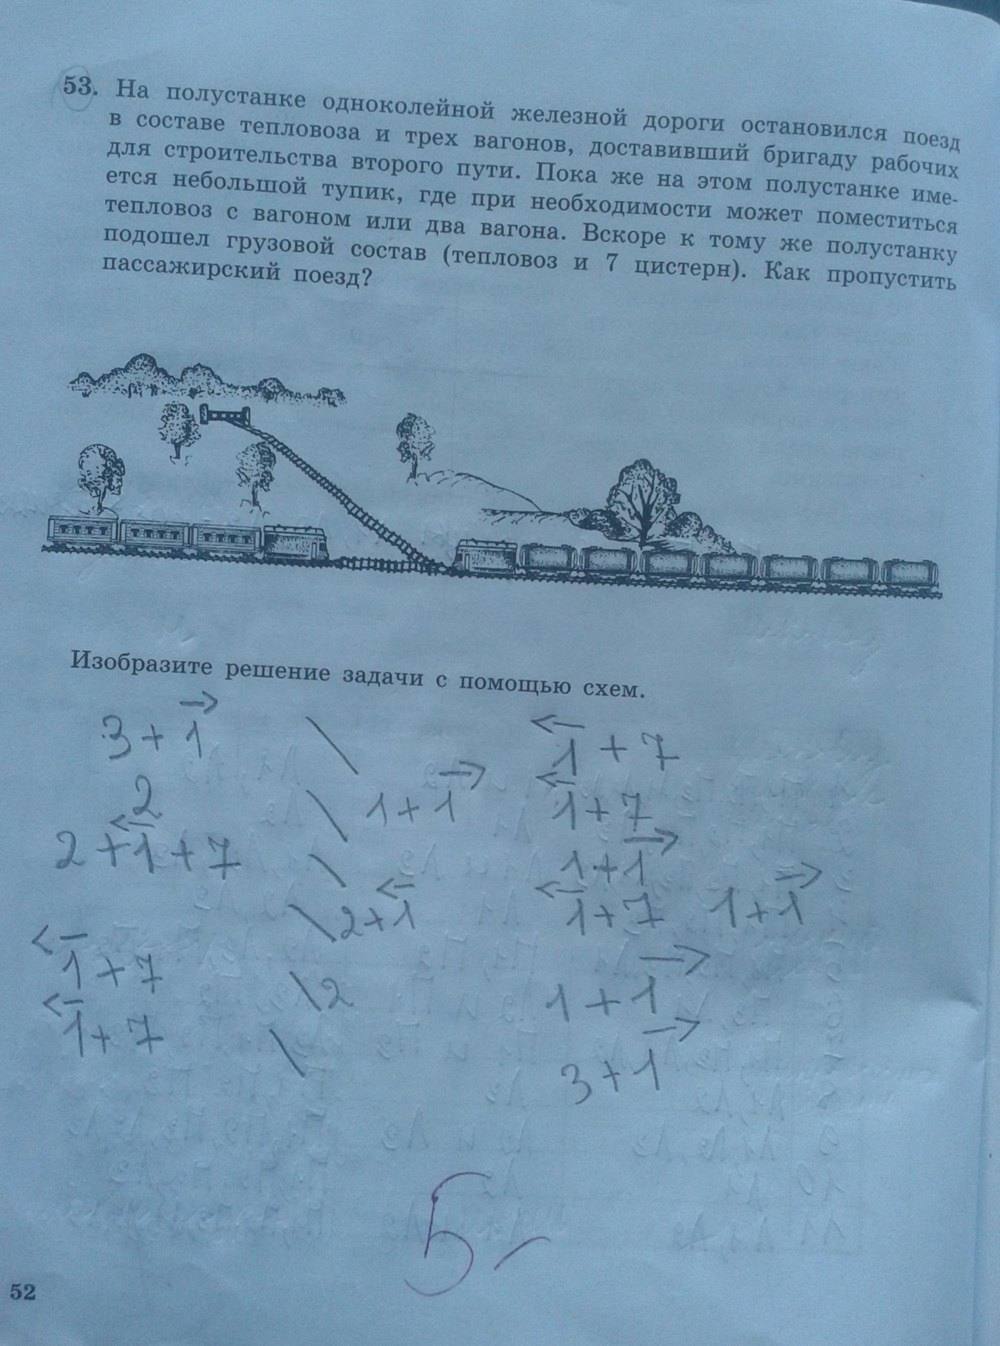 53. На полустанке одноколейной железной дороги остановился поезд
в составе тепловоза и трех вагонов, доставивший бригаду рабочих
для строительства второго пути. Пока же на этом полустанке име-
ется небольшой тупик, где при необходимости может поместиться
тепловоз с вагоном или два вагона. Вскоре к тому же полустанку
подошел грузовой состав (тепловоз и 7 цистерн). Как пропустить
пассажирский поезд?
Изобразите решение задачи с помощью схем.
3 + 1 \ 1 + 7
2 \ 1 + 1 1 + 7
2 + 1 + 7 \ 1 + 1
\ 2 + 1 1 + 7 1 + 1
1 + 7 \ 2 1 + 1
1 + 7 \ 3 + 1
5 -
52